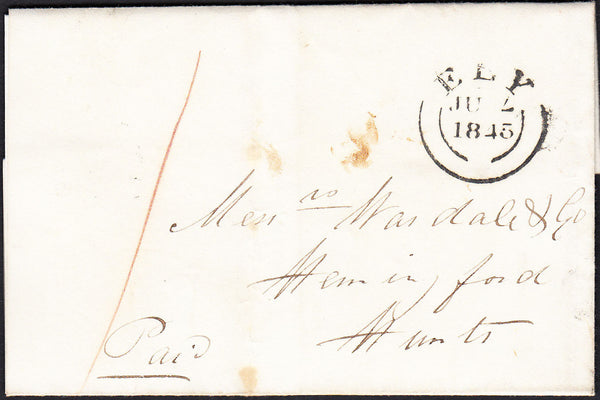 ELY
JU 2
1845
Messrs Wasdale & Co
Hemingford
Hunts
Paid